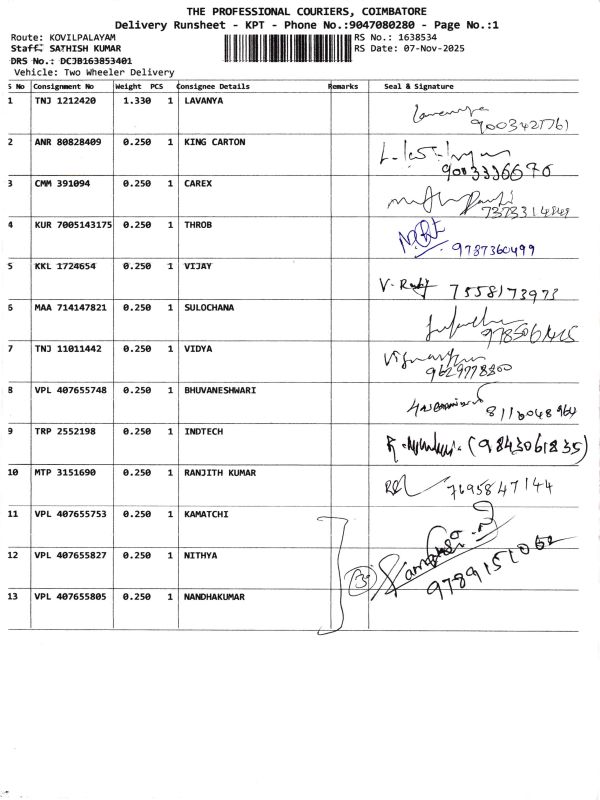 THE PROFESSIONAL COURIERS, COIMBATORE
Delivery Runsheet - KPT - Phone No.:9047080280 - Page No.:1
Route: KOVILPALAYAM RS No.: 1638534
Staff: SATHISH KUMAR RS Date: 07-Nov-2025
DRS No.: DCJB163853401
Vehicle: Two Wheeler Delivery
S No Consignment No Weight PCS Consignee Details Remarks Seal & Signature
1 TNJ 1212420 1.330 1 LAVANYA
2 ANR 80828409 0.250 1 KING CARTON
9003336676
3 CMM 391094 0.250 1 CAREX
4 KUR 7005143175 0.250 1 THROB
9787360499
5 KKL 1724654 0.250 1 VIJAY
7558173973
6 MAA 714147821 0.250 1 SULOCHANA
7 TNJ 11011442 0.250 1 VIDYA
8 VPL 407655748 0.250 1 BHUVANESHWARI
8110048964
9 TRP 2552198 0.250 1 INDTECH (9843061835)
10 MTP 3151690 0.250 1 RANJITH KUMAR
7695847144
11 VPL 407655753 0.250 1 KAMATCHI
12 VPL 407655827 0.250 1 NITHYA
13 VPL 407655805 0.250 1 NANDHAKUMAR